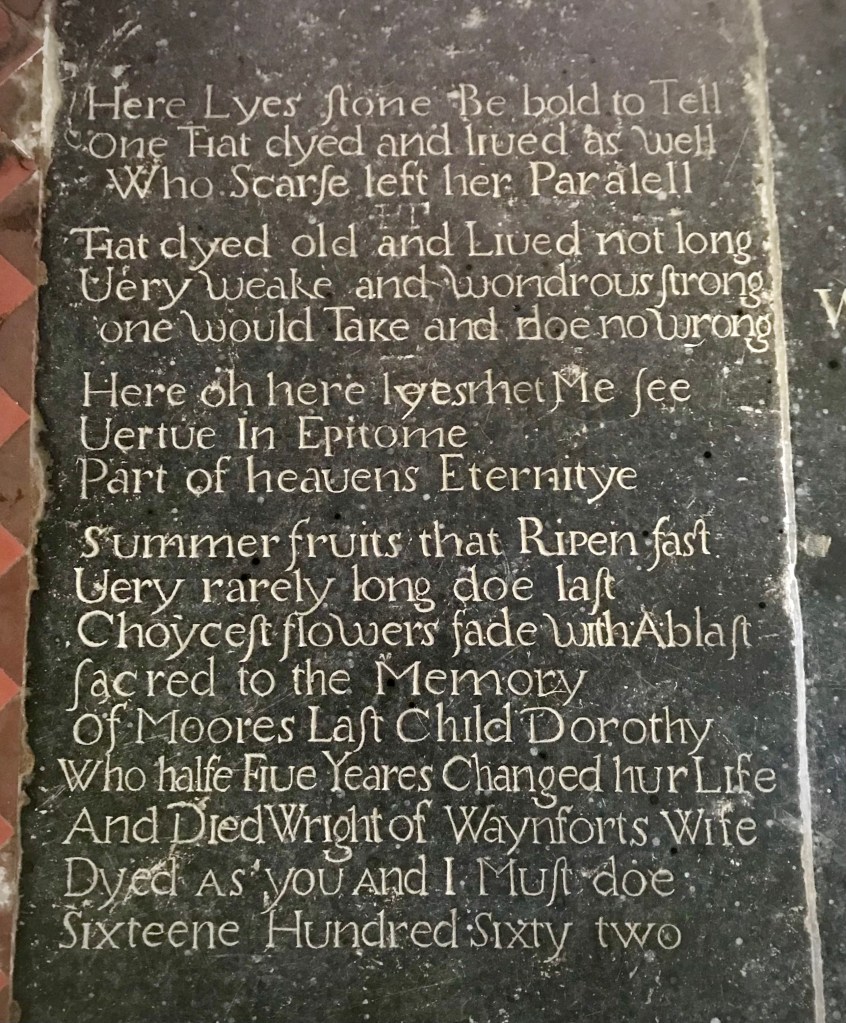 Here Lyes ſtone Be bold to Tell
one That dyed and liued as well
Who Scarſe left her Paralell
That dyed old and Liued not long
Uery weake and wondrous ſtrong
one would Take and doe no wrong
Here oh here lyes Me ſee
Uertue In Epitome
Part of heauens Eternitye
Summer fruits that Ripen faſt
Uery rarely long doe laſt
Choyceſt flowers fade with A blaſt
ſacred to the Memory
of Moores Laſt Child Dorothy
Who halfe Fiue Yeares Changed hur Life
And Died Wright of Waynforts Wife
Dyed As you And I Muſt doe
Sixteene Hundred Sixty two